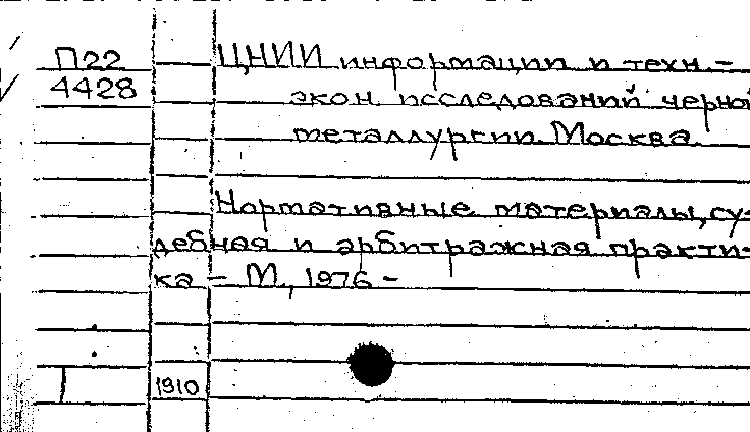 П22 ЦНИИ информации и техн.-
4428 экон. исследований черной
металлургии. Москва.
Нормативные материалы, су-
дебная и арбитражная практи-
ка - М., 1976 -
1910